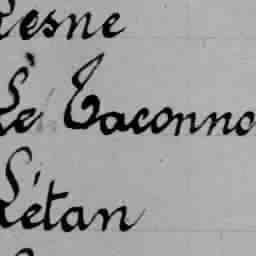 Resne
Le Taconno
L'étan